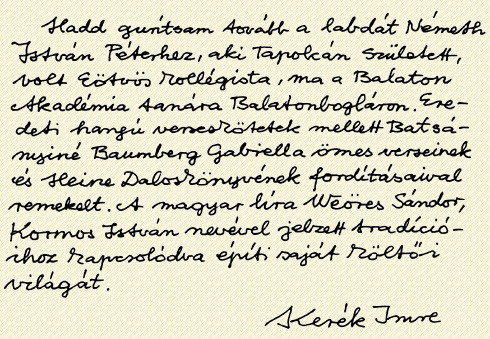 Hadd gurítsam tovább a labdát Németh
István Péterhez, aki Tapolcán született,
volt Eötvös kollégista, ma a Balaton
Akadémia tanára Balatonbogláron. Ere-
deti hangú verseskötetek mellett Batsá-
nyiné Baumberg Gabriella ömes verseinek
és Heine Daloskönyvének fordításaival
remekelt. A magyar líra Weöres Sándor,
Kormos István nevével jelzett tradíció-
ihoz kapcsolódva építi saját költői
világát.
Kerék Imre